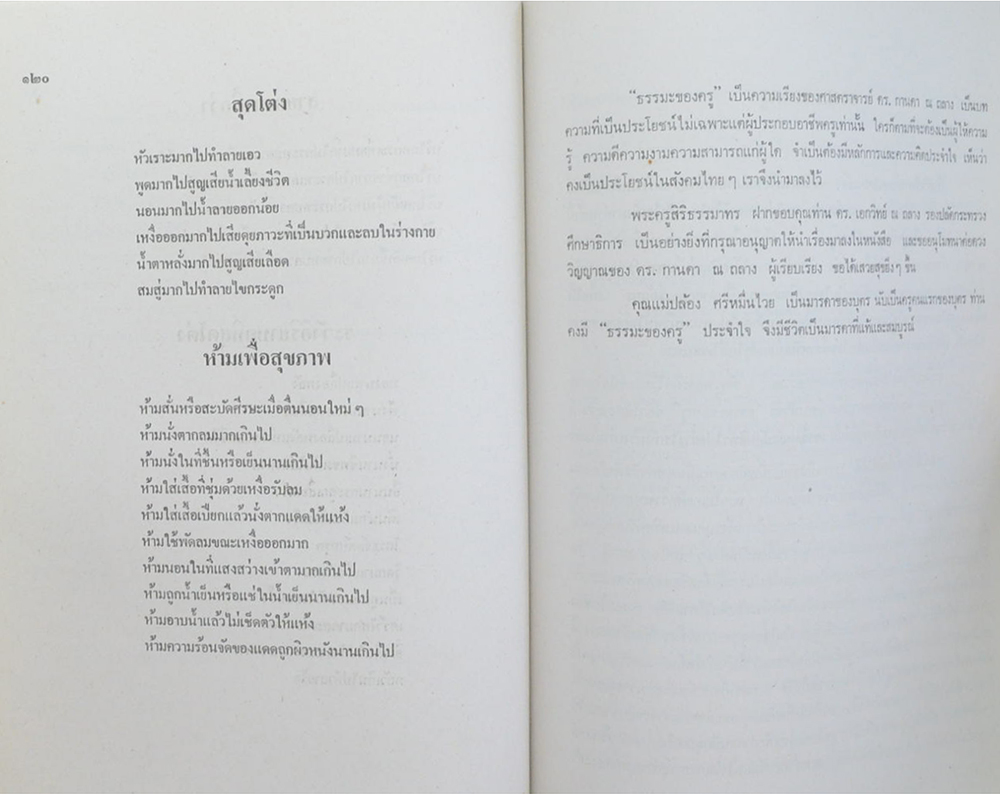 ๑๒๐
สุดโต่ง
หัวเราะมากไปทำลายเอว
พูดมากไปสูญเสียน้ำเลี้ยงชีวิต
นอนมากไปน้ำลายออกน้อย
เหงื่อออกมากไปเสียดุยภาวะที่เป็นบวกและลบในร่างกาย
น้ำตาหลั่งมากไปสูญเสียเลือด
สมสู่มากไปทำลายไขกระดูก
ห้ามเพื่อสุขภาพ
ห้ามสั่นหรือสะบัดศีรษะเมื่อตื่นนอนใหม่ ๆ
ห้ามนั่งตากลมมากเกินไป
ห้ามนั่งในที่ชื้นหรือเย็นนานเกินไป
ห้ามใส่เสื้อที่ชุ่มด้วยเหงื่อรับลม
ห้ามใส่เสื้อเปียกแล้วนั่งตากแดดให้แห้ง
ห้ามใช้พัดลมขณะเหงื่อออกมาก
ห้ามนอนในที่แสงสว่างเข้าตามากเกินไป
ห้ามถูกน้ำเย็นหรือแช่ในน้ำเย็นนานเกินไป
ห้ามอาบน้ำแล้วไม่เช็ดตัวให้แห้ง
ห้ามความร้อนจัดของแดดถูกผิวหนังนานเกินไป
“ธรรมะของครู” เป็นความเรียงของศาสตราจารย์ ดร. กานดา ณ ถลาง เป็นบท
ความที่เป็นประโยชน์ไม่เฉพาะแต่ผู้ประกอบอาชีพครูเท่านั้น ใครก็ตามที่จะต้องเป็นผู้ให้ความ
รู้ ความดีความงามความสามารถแก่ผู้ใด จำเป็นต้องมีหลักการและความคิดประจำใจ เห็นว่า
คงเป็นประโยชน์ในสังคมไทย ๆ เราจึงนำมาลงไว้
พระครูสิริธรรมาทร ฝากขอบคุณท่าน ดร. เอกวิทย์ ณ ถลาง รองปลัดกระทรวง
ศึกษาธิการ เป็นอย่างยิ่งที่กรุณาอนุญาตให้นำเรื่องมาลงในหนังสือ และขออนุโมทนาต่อดวง
วิญญาณของ ดร. กานดา ณ ถลาง ผู้เรียบเรียง ขอได้เสวยสุขยิ่งๆ ขึ้น
คุณแม่ปล้อง ศรีหมื่นไวย เป็นมารดาของบุตร นับเป็นครูคนแรกของบุตร ท่าน
คงมี “ธรรมะของครู” ประจำใจ จึงมีชีวิตเป็นมารดาที่แท้และสมบูรณ์